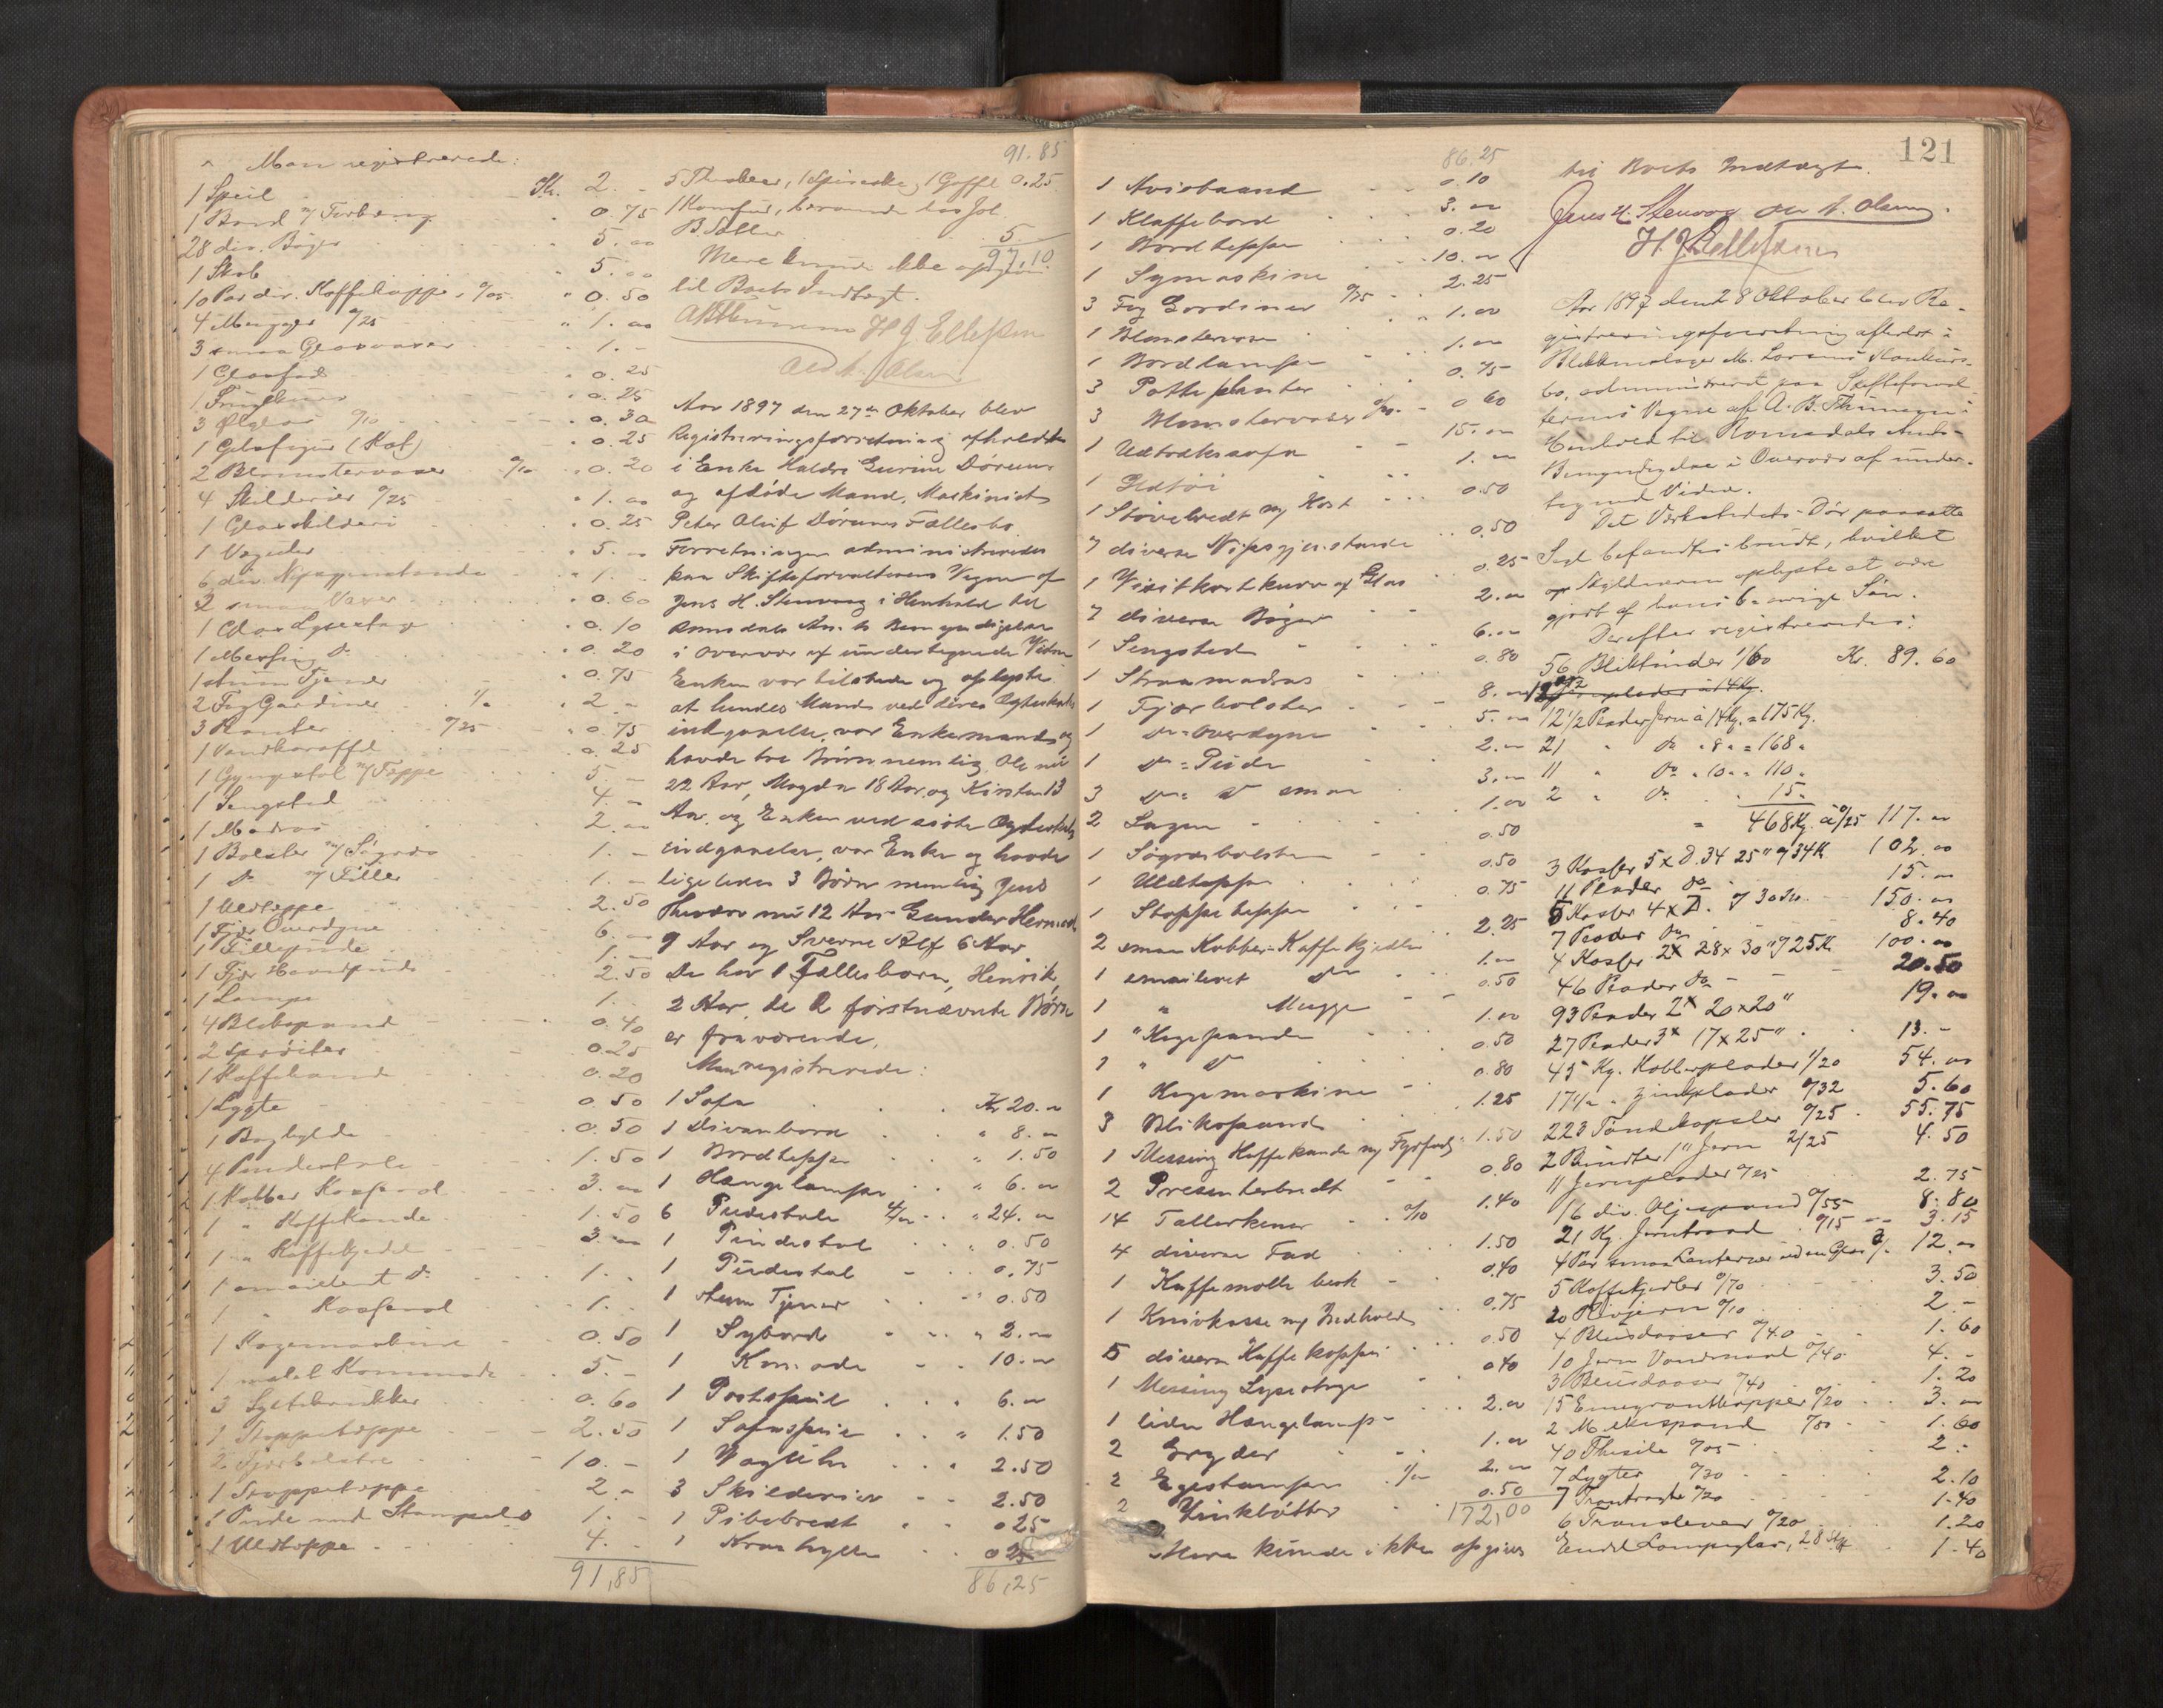 Man registrerede:
1 Speil Kr. 2.-
1 Bord m/ Forhæng " 0.75
28 div. Bøger " 5.00
1 Skab " 5.00
10 Par div. Kaffekopper 0/05 " 0.50
4 Mugger 0/25 " 1.00
3 smaa Glasvaser " 1.-
1 Glasfad " 0.25
0.25
3 Ølglas 0/10 0.30
1 Gibsfigur (Kat) 0.25
2 Blomstervaser 0/10 0.20
4 Skilderier 0/25 " 1.00
1 Glasskilderi " 0.25
1 Vægeuhr " 5.-
6 div. Nipsgjenstande " 1.-
2 smaa Vaser " 0.60
1 Glas Lysestage " 0.10
1 Messing do " 0.20
1 stum Tjener " 0.75
2 Fag Gardiner 1/- " 2.-
3 Planter 0/25 " 0.75
1 Vandkaraffel 0.25
1 Gyngestol m/ Teppe 5.-
1 Sengsted 4.-
1 Madras 2.00
1 Bolster m/ Søgræs 1.-
1 do m/ Filler 1.-
1 Uldteppe 2.50
1 Fjær Overdyne 6.-
1 Fillepude 1.-
1 Fjær Hovedpude 2.50
1 Lampe 1.-
4 Blikspand 0.40
2 Sprøiter 0.25
1 Kaffekande 0.20
1 Lygte 0.50
1 Boghylde 0.50
4 Pindestole 1.50
1 Kobber Kasserol 3.00
1 " Kaffekande 1.50
1 " Kaffekjedel 3.00
1 emaileret do 1.-
1 " Kasserol 1.-
1 Kagemaskine 0.50
1 malet Kommode 5.-
3 Syltekrukker 0.60
1 Stoppeteppe 2.50
2 Fjærbolstre 10.-
1 Stoppeteppe 2.-
1 Pude med Stampeld 1.-
1 Uldteppe 4.-
91,85
91.85
5 Theskeer, 1 Spiseske, 1 Gaffel 0.25
1 Komfur, beroende hos Joh.
B. Sæller 5
97,10
Mere kunde ikke opgives
til Boets Indtægt.
A B Thünem H. J. Ellefsen
Ole A. Olsen
Aar 1897 den 27de Oktober blev
Registreringsforretning afholdt
i Enke Haldis Gurine Dørums
og afdøde Mand, Maskinist
Peter Oluf Dørums Fællesbo.
Forretningen administreredes
paa Skifteforvalterens Vegne af
Jens H. Stenvaag i Henhold til
Romsdals Amts Bemyndigelse
i Overvær af undertegnede Vidner
Enken var tilstede og oplyste
at hendes Mand ved deres Ægteskabs
indgaaelse, var Enkemand og
havde tre Børn nemlig Ole nu
22 Aar, Magda 18 Aar og Kirsten 13
Aar, og Enken ved sidste Ægteskabs
indgaaelse, var Enke og havde
ligeledes 3 Børn nemlig Jens
Theodor nu 12 Aar Gunder Hermod
9 Aar og Sverre Alf 6 Aar
De har 1 Fællesbarn, Henrik,
2 Aar. De 2 førstnævnte Børn
er fraværende.
Man registrerede:
1 Sofa Kr 20.-
1 Divanbord " 8.-
1 Bordteppe " 1.50
1 Hængelampe " 6.-
6 Pudestole 4/- " 24.-
1 Pindestol " 0.50
1 Pudestol 0.75
1 stum Tjener " 0.50
1 Sybord " 2.-
1 Komode 10.-
1 Postspeil " 6.-
1 Sofaspeil " 1.50
1 VægUhr " 2.50
3 Skilderier 2.50
1 Pibebredt 0 25
1 Kraahylle 0 25
86,25
121
86.25
1 Avisbaand 0.10
1 Klaffebord 3.00
1 Bordteppe 0.20
1 Symaskine 10.-
3 Fag Gardiner 0/75 2.25
1 Blomstervase 1.00
1 Bordlampe 1.00
3 Potteplanter 0.75
3 Blomstervaser 0/20 0 60
1 Udtræksofa 15.-
1 Ildtøi 1.-
1 Støvebredt m/ Kost 0.50
7 diverse Nipsgjenstande 0.50
1 Visitkortkurv af Glas 0.25
7 diverse Bøger 2.00
1 Sengsted 6.00
1 Straamadras 0.80
1 Fjærbolster 8.-
1 do Overdyne 5.-
1 do Pude 2.-
3 do do smaa 3.-
2 Lagen 1.00
1 Søgræsbolster 0.50
1 Uldteppe 0.50
1 Stoppeteppe 0.75
2 smaa Kobber-Kaffekjedler 2.25
1 emaileret do 1.-
1 " Mugge 0.50
1 " Kagepande 1.00
1 " do 0.50
1 Kagemaskine 0.80
3 Blikspand 1.25
1 Messing Kaffekande m/ Fyrfad 1.50
2 Presenterbredt 0.80
14 Tallerkener 0/10 1.40
4 diverse Fad 1.50
1 Kaffemølle besk 0.40
1 Knivkasse m/ Indhold 0.75
5 diverse Kaffekopper 0.50
1 Messing Lysestage 0 40
1 liden Hængelampe 2.00
2 Gryder 1.00
2 1/- 2.-
2 Zinkbøtter 0.50
172,00
Mere kunde ikke opgives
til Boets Indtægt.
Jens H. Stenvaag Ole A. Olsen.
H. J. Ellefsen
Aar 1897 den 28 Oktober blev Re-
gistreringsforretning afholdt i
Blikkenslager M. Konkurs-
bo, administreret paa Skifteforval-
terens Vegne af A. B. Thünem i
Henhold til Romsdals Amts-
Bemyndigelse i Overvær af under-
tegnede Vidner.
Det Værkstedets-Dør paasatte
Segl befandtes brudt, hvilket
Skyldneren oplyste at være
gjort af hans 6-aarige Søn.
Derefter registreredes:
56 Bliktønder 1/60 Kr. 89.60
12 1/2 Plader Jern à 14 Kg. = 175 Kg.
21 " do " 8 " = 168 "
11 " do " 10 " = 110 "
2 " do 15.
= 468 Kg. à 0/25 117.-
3 Kasser 5 x D. 34 25" 34 Kr 102.00
11 Plader do 15.-
5 Kasser 4 x D. 30 Kr. 150.00
7 Plader do 8.40
4 Kasser 2x 28 x 30" 25 Kr 100.00
46 Plader do 20.50
93 Plader 2x 20 x 20" 19.00
27 Plader 3x 17 x 25" 13.-
45 Kg. Kobberplader 1/20 54.00
17 1/2 " Zinkplader 0/32 5.60
223 Tøndekapsler 0/25 55.75
2 Bundter 1" Jern 2/25 4.50
11 Jernplader 0/25 2.75
16 div. Oljespand 0/55 8.80
21 Kg. Jerntraad 0/15 3.15
4 Par smaa Lanterner uden Glas 3/- 12.00
5 Kaffekjedler 0/70 3.50
20 Rivjern 0/10 2.-
4 Blusdaaser 0/40 1.60
10 Jern Vandmaal 0/40 4.-
3 Blusdaaser 0/40 1.20
15 Emigrantkopper 0/20 3.00
2 Melkespand 0/80 1.60
40 Thesile 0/05 2.-
7 Lygter 0/30 2.10
7 Trantragte 0/20 1.40
6 0/20 1.20
Endel Lampeglas, 28 Stk 1.40